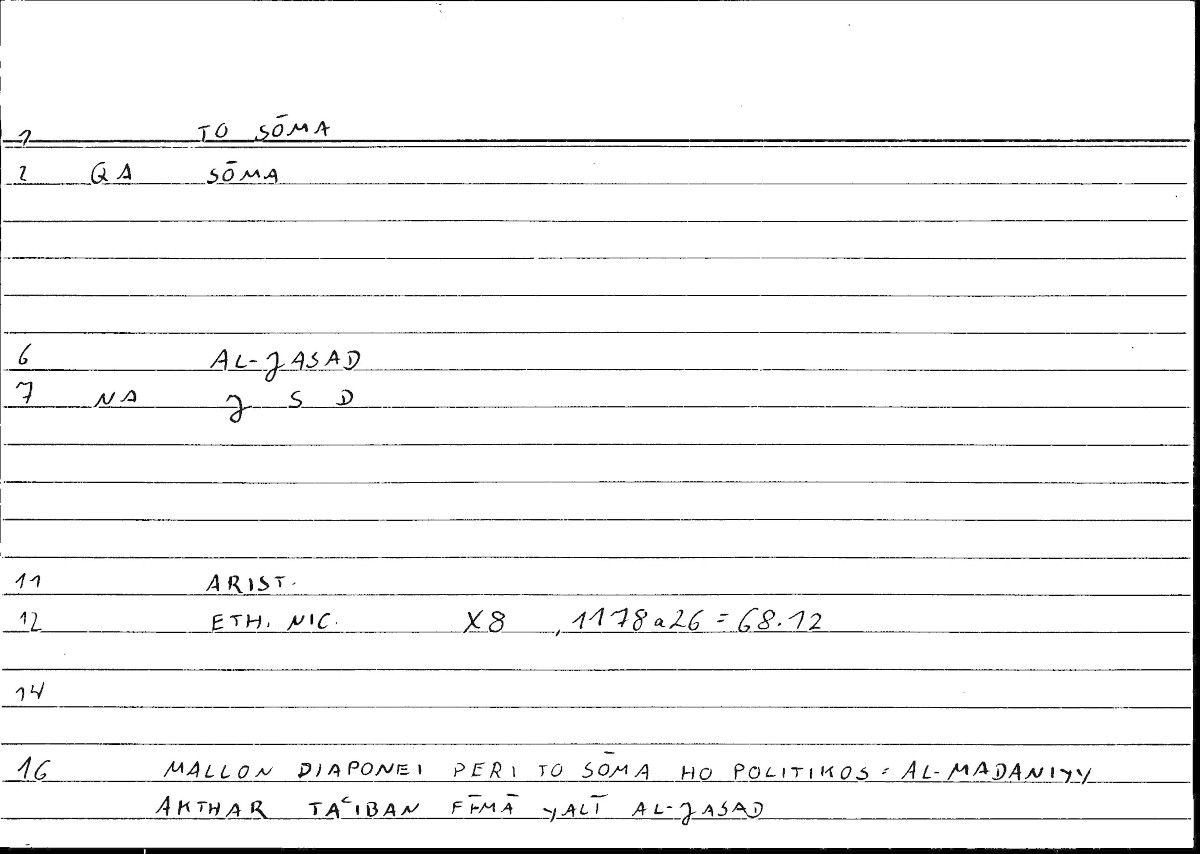 1 TO SŌMA
2 QA SŌMA
6 AL-JASAD
7 NA J S D
11 ARIST.
12 ETH. NIC. X8 , 1178a26 = 68.12
14
16 MALLON DIAPONEI PERI TO SŌMA HO POLITIKOS = AL-MADANIYY
AKTHAR TAʿIBAN FĪMĀ YALĪ AL-JASAD